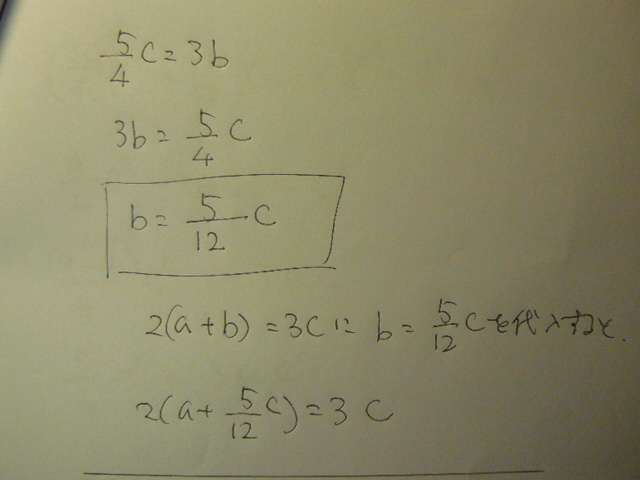 5/4 C = 3b
3b = 5/4 C
b = 5/12 C
2(a+b) = 3Cに b = 5/12 Cを代入すると.
2(a+ 5/12 C) = 3C